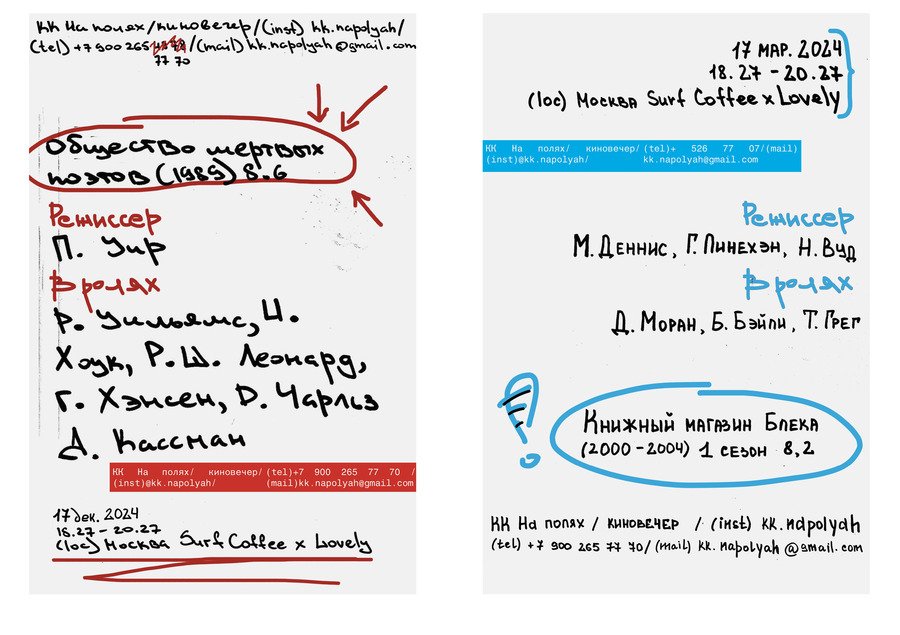 КК На полях/киновечер/(inst) kk.napolyah/
(tel) +7 900 265 /(mail) kk.napolyah@gmail.com
77 70
Общество мертвых
поэтов (1989) 8.6
Режиссер
П. Уир
В ролях
Р. Уильямс, И.
Хоук, Р.Ш. Леонард,
Г. Хэнсен, D. Чарльз
Д. Кассман
КК На полях/ киновечер/ (tel)+7 900 265 77 70 /
(inst)@kk.napolyah/ (mail)kk.napolyah@gmail.com
17 дек. 2024
18.27 - 20.27
(loc) Москва Surf Coffee x Lovely
17 мар. 2024
18.27 - 20.27
(loc) Москва Surf Coffee x Lovely
КК На полях/ киновечер/ (tel)+ 526 77 07/(mail)
(inst)@kk.napolyah/ kk.napolyah@gmail.com
Режиссер
М. Деннис, Г. Линехэн, Н. Вуд
В ролях
Д. Моран, Б. Бэйли, Т. Грег
Книжный магазин Блека
(2000 - 2004) 1 сезон 8,2
КК На полях / киновечер / (inst) kk.napolyah
(tel) +7 900 265 77 70/ (mail) kk.napolyah@gmail.com